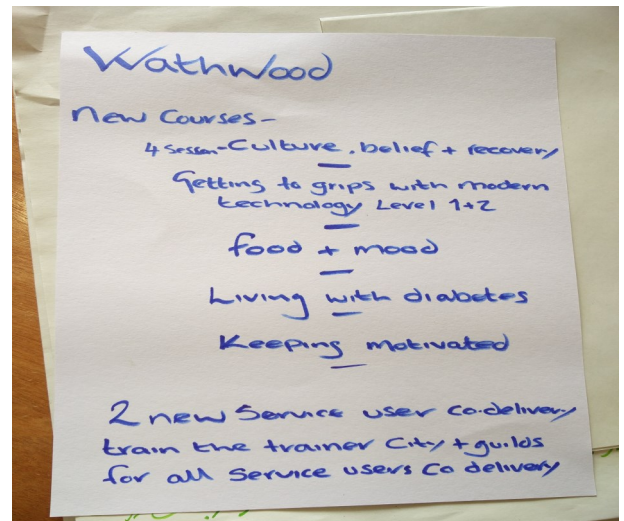 Wathwood
New Courses-
4 Sesson-Culture, belief + recovery
Getting to grips with modern
technology Level 1+2
food + mood
Living with diabetes
Keeping motivated
2 new Service user co.delivery
train the trainer City + guilds
for all Service users Co delivery